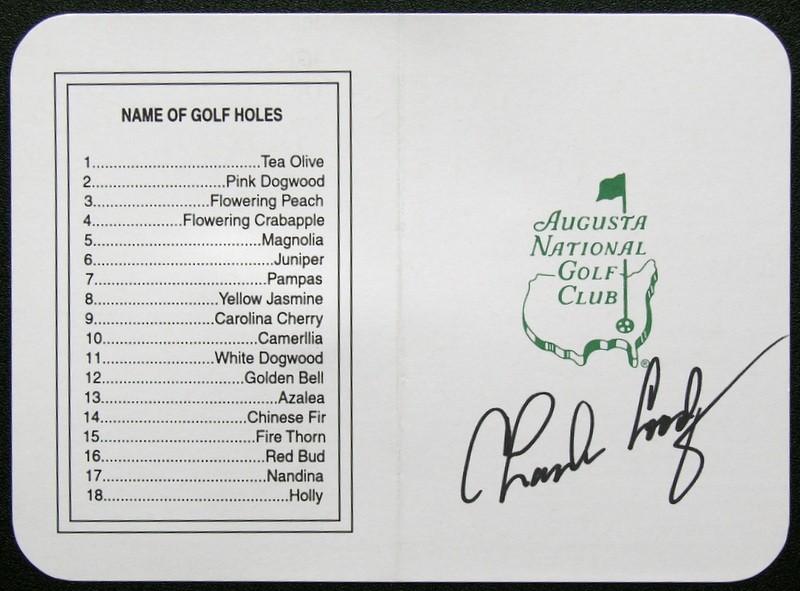 NAME OF GOLF HOLES
1..........................................Tea Olive
2.................................Pink Dogwood
3.............................Flowering Peach
4.......................Flowering Crabapple
5..........................................Magnolia
6.............................................Juniper
7...........................................Pampas
8...............................Yellow Jasmine
9..............................Carolina Cherry
10.......................................Camerllia
11............................White Dogwood
12...................................Golden Bell
13............................................Azalea
14....................................Chinese Fir
15......................................Fire Thorn
16.........................................Red Bud
17.........................................Nandina
18..............................................Holly
AUGUSTA
NATIONAL
GOLF
CLUB
®